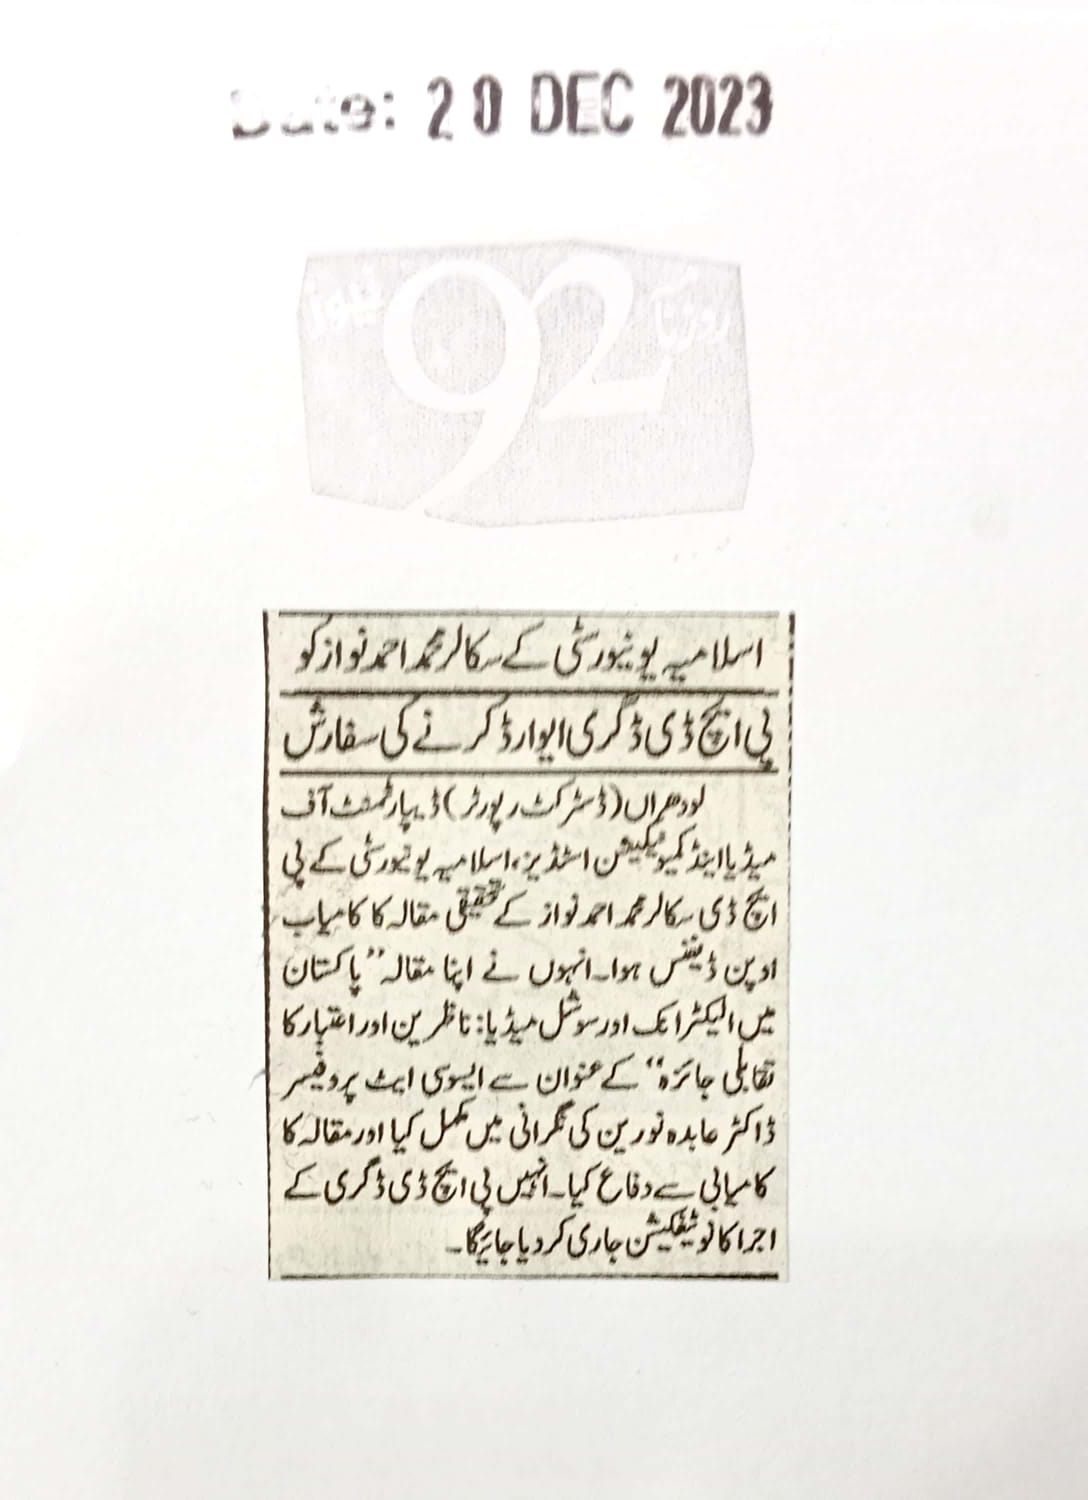 Date: 20 DEC 2023
روزنامہ 92 نیوز
اسلامیہ یونیورسٹی کے سکالر محمد احمد نواز کو
پی ایچ ڈی ڈگری ایوارڈ کرنے کی سفارش
لودھراں (ڈسٹرکٹ رپورٹر) ڈیپارٹمنٹ آف
میڈیا اینڈ کمیونیکیشن اسٹڈیز، اسلامیہ یونیورسٹی کے پی
ایچ ڈی سکالر محمد احمد نواز کے تحقیقی مقالہ کا کامیاب
اوپن ڈیفنس ہوا۔ انہوں نے اپنا مقالہ ”پاکستان
میں الیکٹرانک اور سوشل میڈیا: ناظرین اور اعتبار کا
تقابلی جائزہ“ کے عنوان سے ایسوسی ایٹ پروفیسر
ڈاکٹر عابدہ نورین کی نگرانی میں مکمل کیا اور مقالہ کا
کامیابی سے دفاع کیا۔ انہیں پی ایچ ڈی ڈگری کے
اجرا کا نوٹیفکیشن جاری کر دیا جائیگا۔